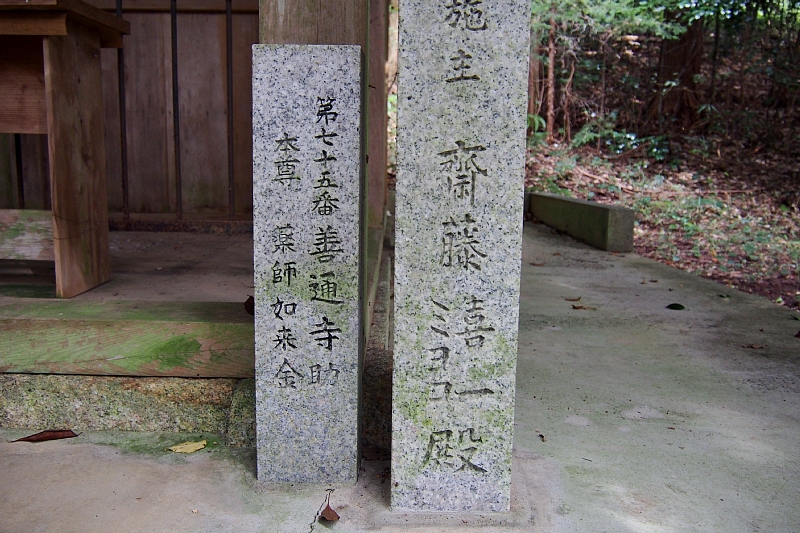 第七十五番善通寺助
本尊 薬師如来金
施主 齋藤 喜一
ミヨコ 殿